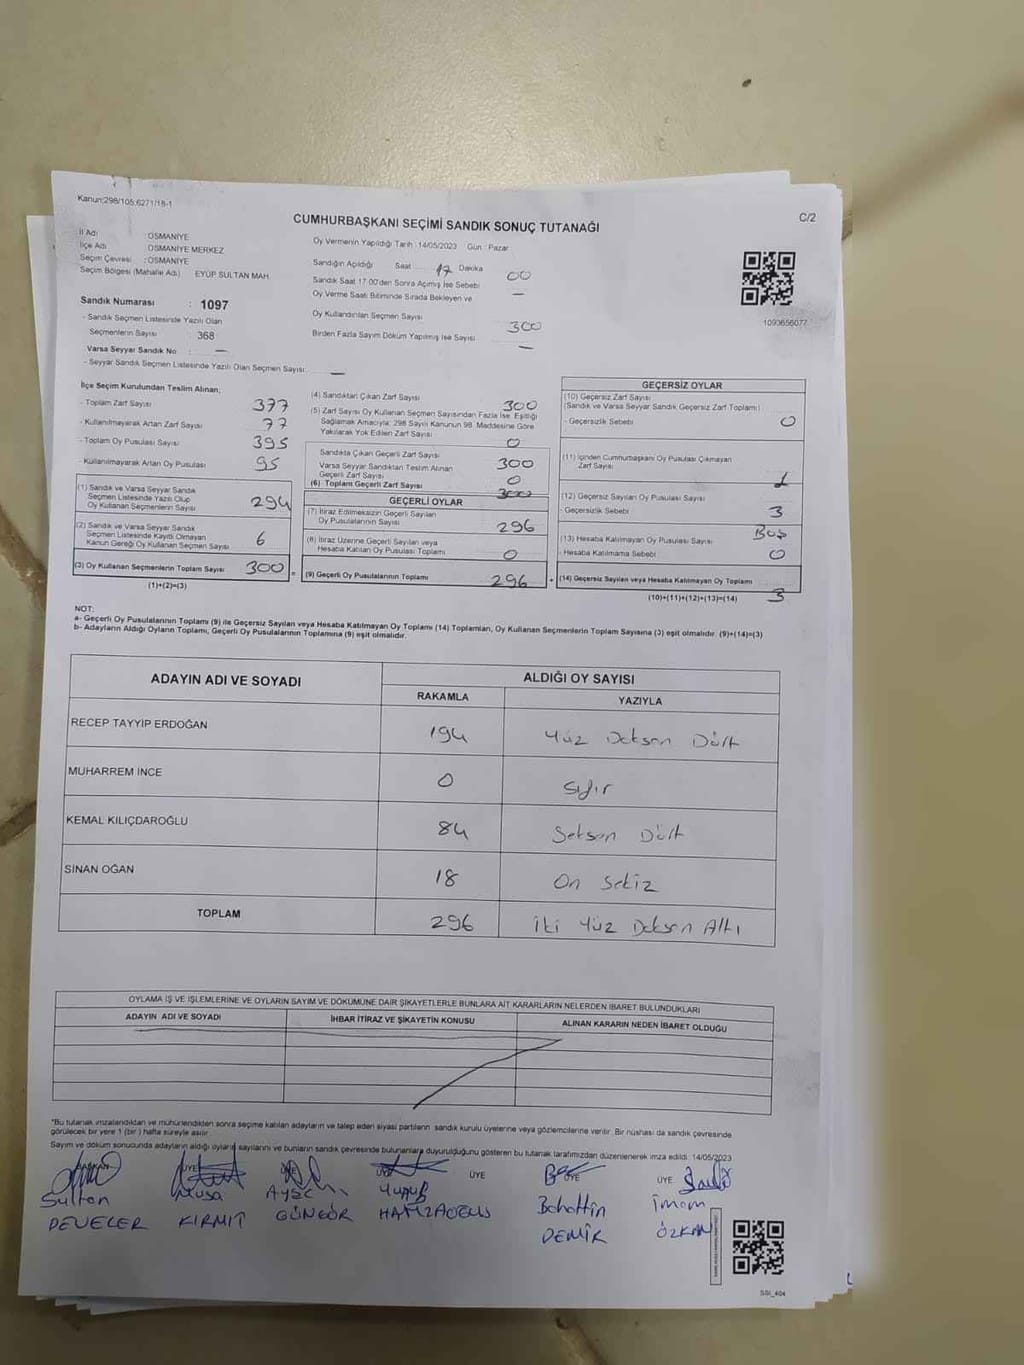 Kanun:298/105,6271/18-1
C/2
CUMHURBAŞKANI SEÇİMİ SANDIK SONUÇ TUTANAĞI
İl Adı : OSMANİYE
İlçe Adı : OSMANİYE MERKEZ
Seçim Çevresi : OSMANİYE
Seçim Bölgesi (Mahalle Adı) EYÜP SULTAN MAH.
Sandık Numarası : 1097
- Sandık Seçmen Listesinde Yazılı Olan
Seçmenlerin Sayısı : 368
Varsa Seyyar Sandık No : —
- Seyyar Sandık Seçmen Listesinde Yazılı Olan Seçmen Sayısı: —
Oy Vermenin Yapıldığı Tarih : 14/05/2023 Gün : Pazar
Sandığın Açıldığı Saat 17 Dakika 00
Sandık Saat 17:00'den Sonra Açılmış İse Sebebi —
Oy Verme Saati Bitiminde Sırada Bekleyen ve
Oy Kullandırılan Seçmen Sayısı 300
Birden Fazla Sayım Döküm Yapılmış İse Sayısı —
1090656077
İlçe Seçim Kurulundan Teslim Alınan;
- Toplam Zarf Sayısı 377
- Kullanılmayarak Artan Zarf Sayısı 77
- Toplam Oy Pusulası Sayısı 395
- Kullanılmayarak Artan Oy Pusulası 95
(1) Sandık ve Varsa Seyyar Sandık
Seçmen Listesinde Yazılı Olup
Oy Kullanan Seçmenlerin Sayısı 294
(2) Sandık ve Varsa Seyyar Sandık
Seçmen Listesinde Kaydı Olmayan
Kanun Gereği Oy Kullanan Seçmen Sayısı 6
(3) Oy Kullanan Seçmenlerin Toplam Sayısı 300
(1)+(2)=(3)
(4) Sandıktan Çıkan Zarf Sayısı 300
(5) Zarf Sayısı Oy Kullanan Seçmen Sayısından Fazla İse, Eşitliği
Sağlamak Amacıyla; 298 Sayılı Kanunun 98. Maddesine Göre
Yakılarak Yok Edilen Zarf Sayısı 0
Sandıkta Çıkan Geçerli Zarf Sayısı 300
Varsa Seyyar Sandıktan Teslim Alınan
Geçerli Zarf Sayısı 0
(6) Toplam Geçerli Zarf Sayısı 300
GEÇERLİ OYLAR
(7) İtiraz Edilmeksizin Geçerli Sayılan
Oy Pusulalarının Sayısı 296
(8) İtiraz Üzerine Geçerli Sayılan veya
Hesaba Katılan Oy Pusulası Toplamı 0
(9) Geçerli Oy Pusulalarının Toplamı 296
GEÇERSİZ OYLAR
(10) Geçersiz Zarf Sayısı
(Sandık ve Varsa Seyyar Sandık Geçersiz Zarf Toplamı)
- Geçersizlik Sebebi 0
(11) İçinden Cumhurbaşkanı Oy Pusulası Çıkmayan
Zarf Sayısı
(12) Geçersiz Sayılan Oy Pusulası Sayısı
- Geçersizlik Sebebi 3
Boş
(13) Hesaba Katılmayan Oy Pusulası Sayısı
- Hesaba Katılmama Sebebi 0
(14) Geçersiz Sayılan veya Hesaba Katılmayan Oy Toplamı 3
(10)+(11)+(12)+(13)=(14)
NOT:
a- Geçerli Oy Pusulalarının Toplamı (9) ile Geçersiz Sayılan veya Hesaba Katılmayan Oy Toplamı (14) Toplamları, Oy Kullanan Seçmenlerin Toplam Sayısına (3) eşit olmalıdır. (9)+(14)=(3)
b- Adayların Aldığı Oyların Toplamı, Geçerli Oy Pusulalarının Toplamına (9) eşit olmalıdır.
ADAYIN ADI VE SOYADI ALDIĞI OY SAYISI
RAKAMLA YAZIYLA
RECEP TAYYİP ERDOĞAN 194 Yüz Doksan Dört
MUHARREM İNCE 0 Sıfır
KEMAL KILIÇDAROĞLU 84 Seksen Dört
SİNAN OĞAN 18 On Sekiz
TOPLAM 296 İki Yüz Doksan Altı
OYLAMA İŞ VE İŞLEMLERİNE VE OYLARIN SAYIM VE DÖKÜMÜNE DAİR ŞİKAYETLERLE BUNLARA AİT KARARLARIN NELERDEN İBARET BULUNDUKLARI
ADAYIN ADI VE SOYADI İHBAR İTİRAZ VE ŞİKAYETİN KONUSU ALINAN KARARIN NEDEN İBARET OLDUĞU
*Bu tutanak imzalandıktan ve mühürlendikten sonra seçime katılan adayların ve talep eden siyasi partilerin sandık kurulu üyelerine veya gözlemcilerine verilir. Bir nüshası da sandık çevresinde
görülecek bir yere 1 (bir) hafta süreyle asılır.
Sayım ve döküm sonucunda adayların aldığı oyların sayılarını ve bunların sandık çevresinde bulunanlara duyurulduğunu gösteren bu tutanak tarafımızdan düzenlenerek imza edildi. 14/05/2023
BAŞKAN ÜYE ÜYE ÜYE ÜYE ÜYE ÜYE
Sultan Musa Yusuf Bahattin İmam
DEVELER KIRMIT GÜNGÖR DEMİR ÖZKAN
SSI_404